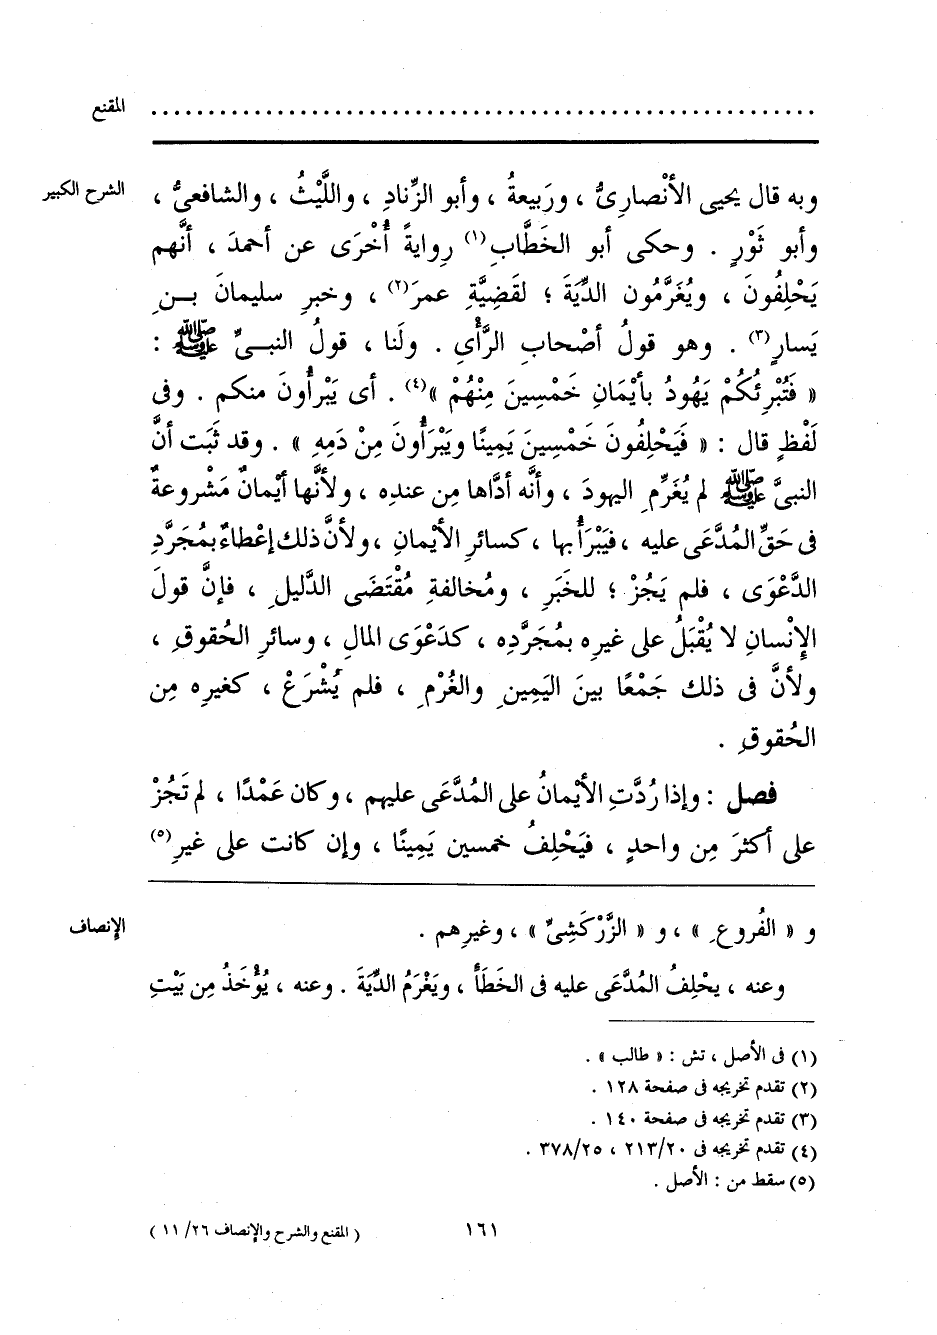 المقنع ............................................................
الشرح الكبير
وبه قال يحيى الأنْصارِىُّ ، ورَبيعةُ ، وأبو الزِّنادِ ، واللَّيْثُ ، والشافعىُّ ،
وأبو ثَوْرٍ . وحكى أبو الخَطَّابِ(١) رِوايةً أُخْرَى عن أحمدَ ، أنَّهم
يَحْلِفُونَ ، ويُغَرَّمُون الدِّيَةَ ؛ لقَضِيَّةِ عمرَ(٢) ، وخبرِ سليمانَ بــنِ
يَسارٍ(٣) . وهو قولُ أصْحابِ الرَّأْىِ . ولَنا ، قولُ النبــىِّ ﷺ :
« فَتُبْرِئُكُمْ يَهُودُ بأيْمَانِ خَمْسِينَ مِنْهُمْ »(٤) . أى يَبْرأُونَ منكم . وفى
لَفْظٍ قال : « فَيَحْلِفُونَ خَمْسِينَ يَمِينًا ويَبْرَأُونَ مِنْ دَمِهِ » . وقد ثَبَت أنَّ
النبىَّ ﷺ لم يُغَرِّمِ اليهودَ ، وأنَّه أدَّاها مِن عندِه ، ولأنَّها أيْمانٌ مَشْروعةٌ
فى حَقِّ المُدَّعَى عليه ، فيَبْرَأُ بها ، كسائرِ الأيْمانِ ، ولأنَّ ذلك إعْطاءٌ بمُجَرَّدِ
الدَّعْوَى ، فلم يَجُزْ ؛ للخَبَرِ ، ومُخالفةِ مُقْتَضَى الدَّليلِ ، فإنَّ قولَ
الإنْسانِ لا يُقْبَلُ على غيرِه بمُجَرَّدِه ، كدَعْوَى المالِ ، وسائرِ الحُقوقِ ،
ولأنَّ فى ذلك جَمْعًا بينَ اليَمِينِ والغُرْمِ ، فلم يُشْرَعْ ، كغيرِه مِن
الحُقوقِ .
فصل : وإذا رُدَّتِ الأيْمانُ على المُدَّعَى عليهم ، وكان عَمْدًا ، لم تَجُزْ
على أكثرَ مِن واحدٍ ، فيَحْلِفُ خمسين يَمِينًا ، وإن كانت على غيرِ(٥)
الإنصاف
و « الفُروعِ » ، و « الزَّرْكَشِىِّ » ، وغيرِهم .
وعنه ، يحْلِفُ المُدَّعَى عليه فى الخطَأ ، ويَغْرَمُ الدِّيَةَ . وعنه ، يُؤْخَذُ مِن بَيْتِ
(١) فى الأصل ، تش : « طالب » .
(٢) تقدم تخريجه فى صفحة ١٢٨ .
(٣) تقدم تخريجه فى صفحة ١٤٠ .
(٤) تقدم تخريجه فى ٢١٣/٢٠ ، ٣٧٨/٢٥ .
(٥) سقط من : الأصل .
١٦١
( المقنع والشرح والإنصاف ٢٦/ ١١ )